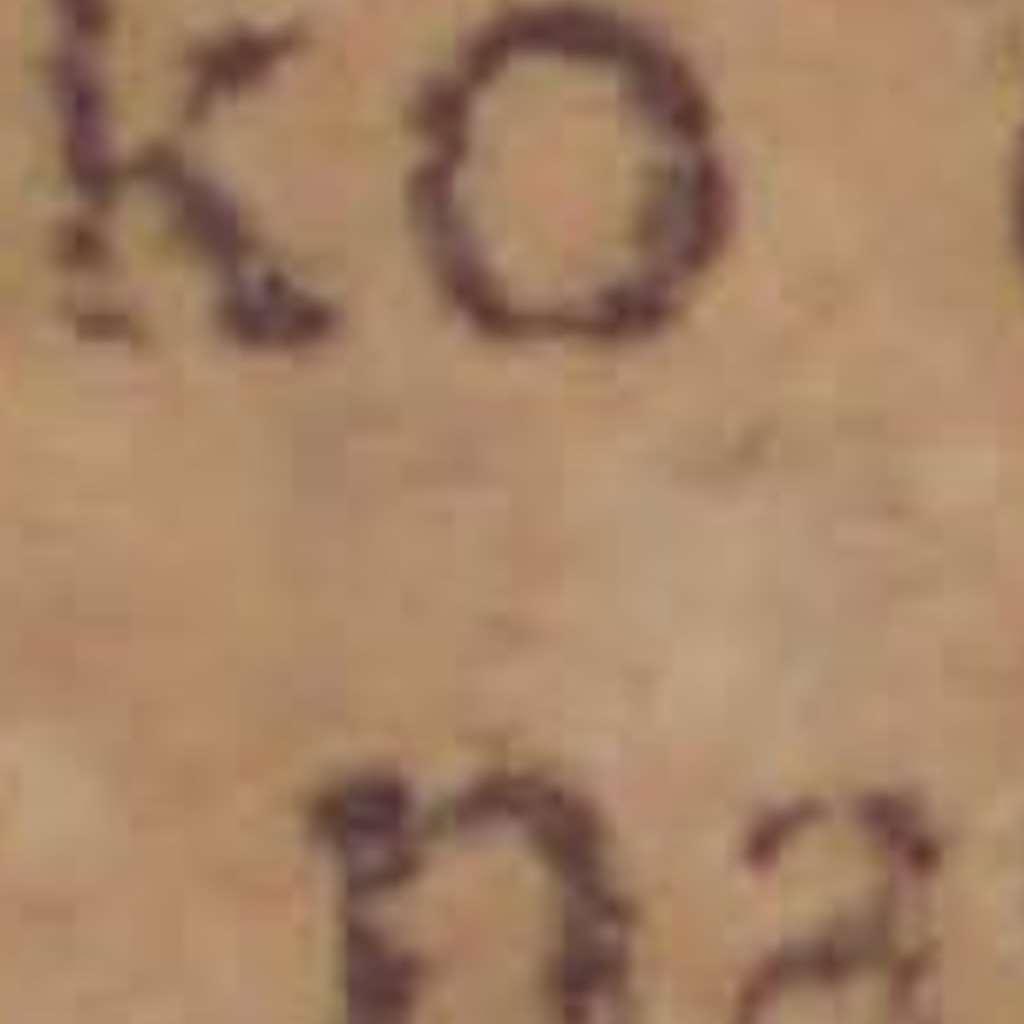 ko
na